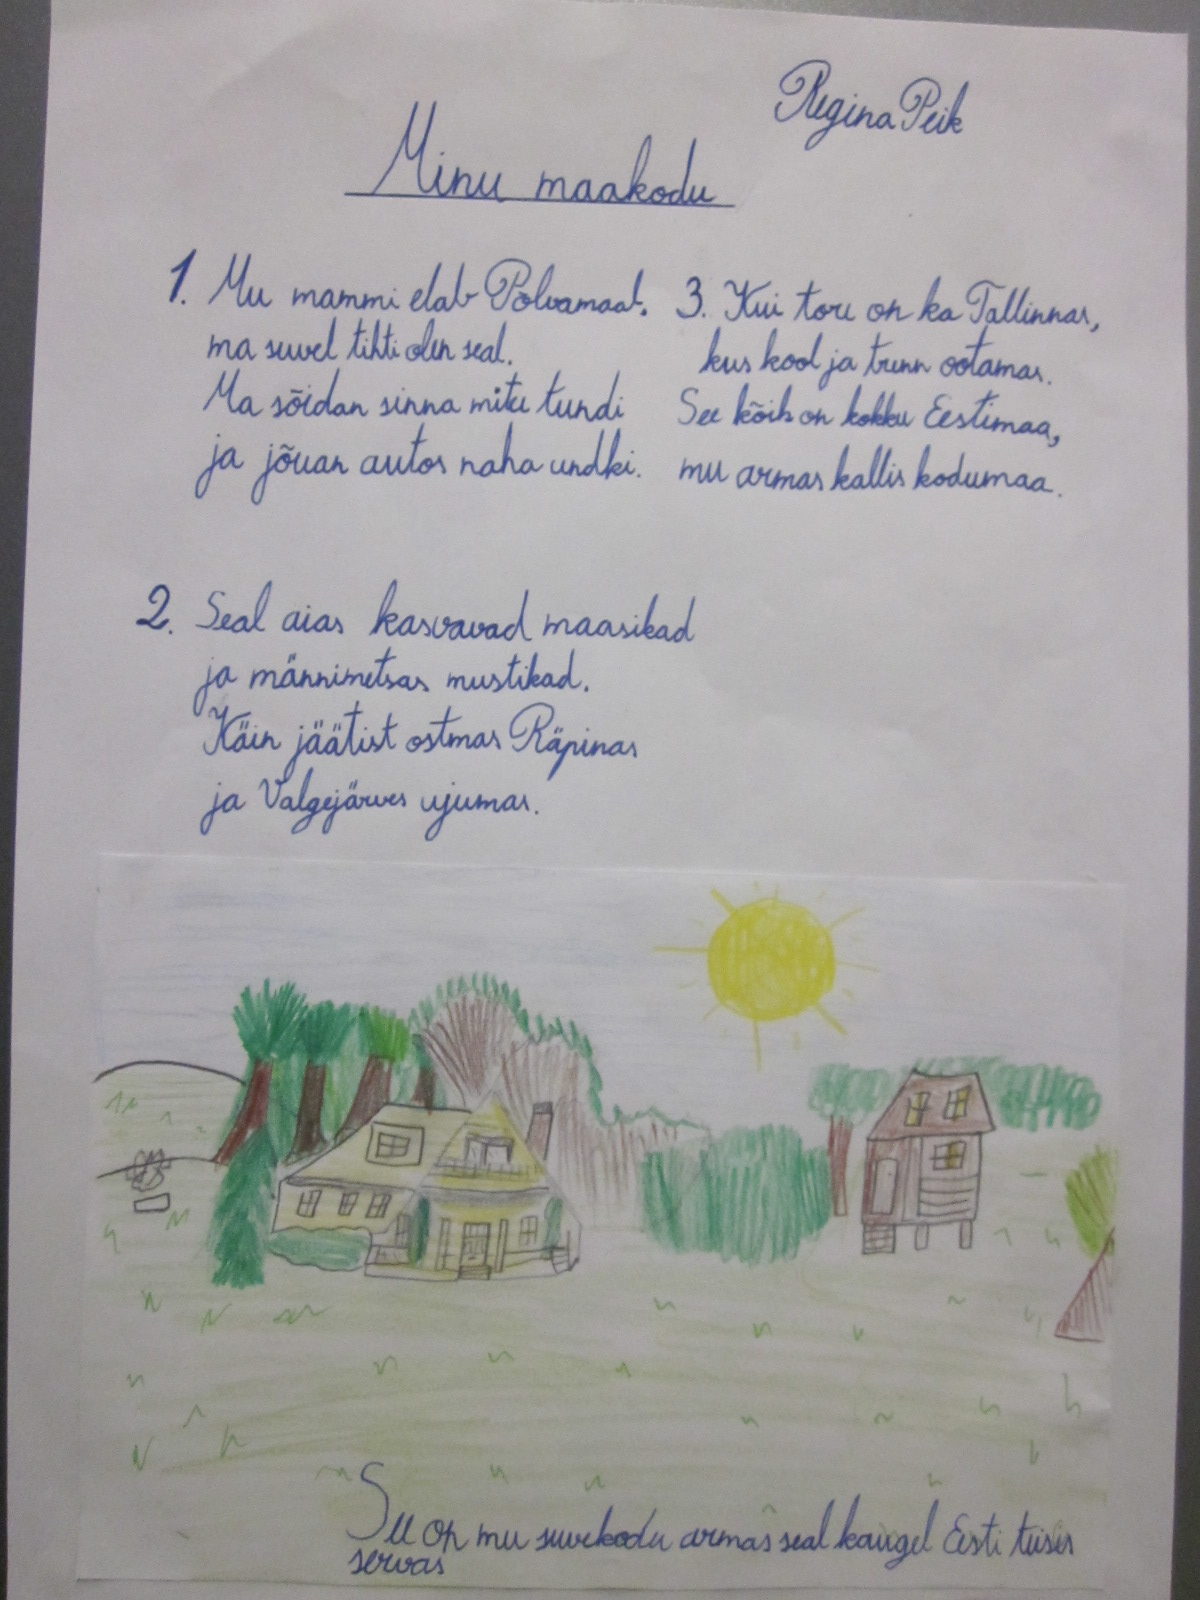 Regina Peik
Minu maakodu
1. Mu mammi elab Põlvamaal,
ma suvel tihti olen seal.
Ma sõidan sinna mitu tundi
ja jõuan autos näha undki.
2. Seal aias kasvavad maasikad
ja männimetsas mustikad.
Käin jäätist ostmas Räpinas
ja Valgejärves ujumas.
3. Kui tore on ka Tallinnas,
kus kool ja trenn ootamas.
See kõik on kokku Eestimaa,
mu armas kallis kodumaa.
See on mu suvekodu armas seal kaugel Eesti teises
servas